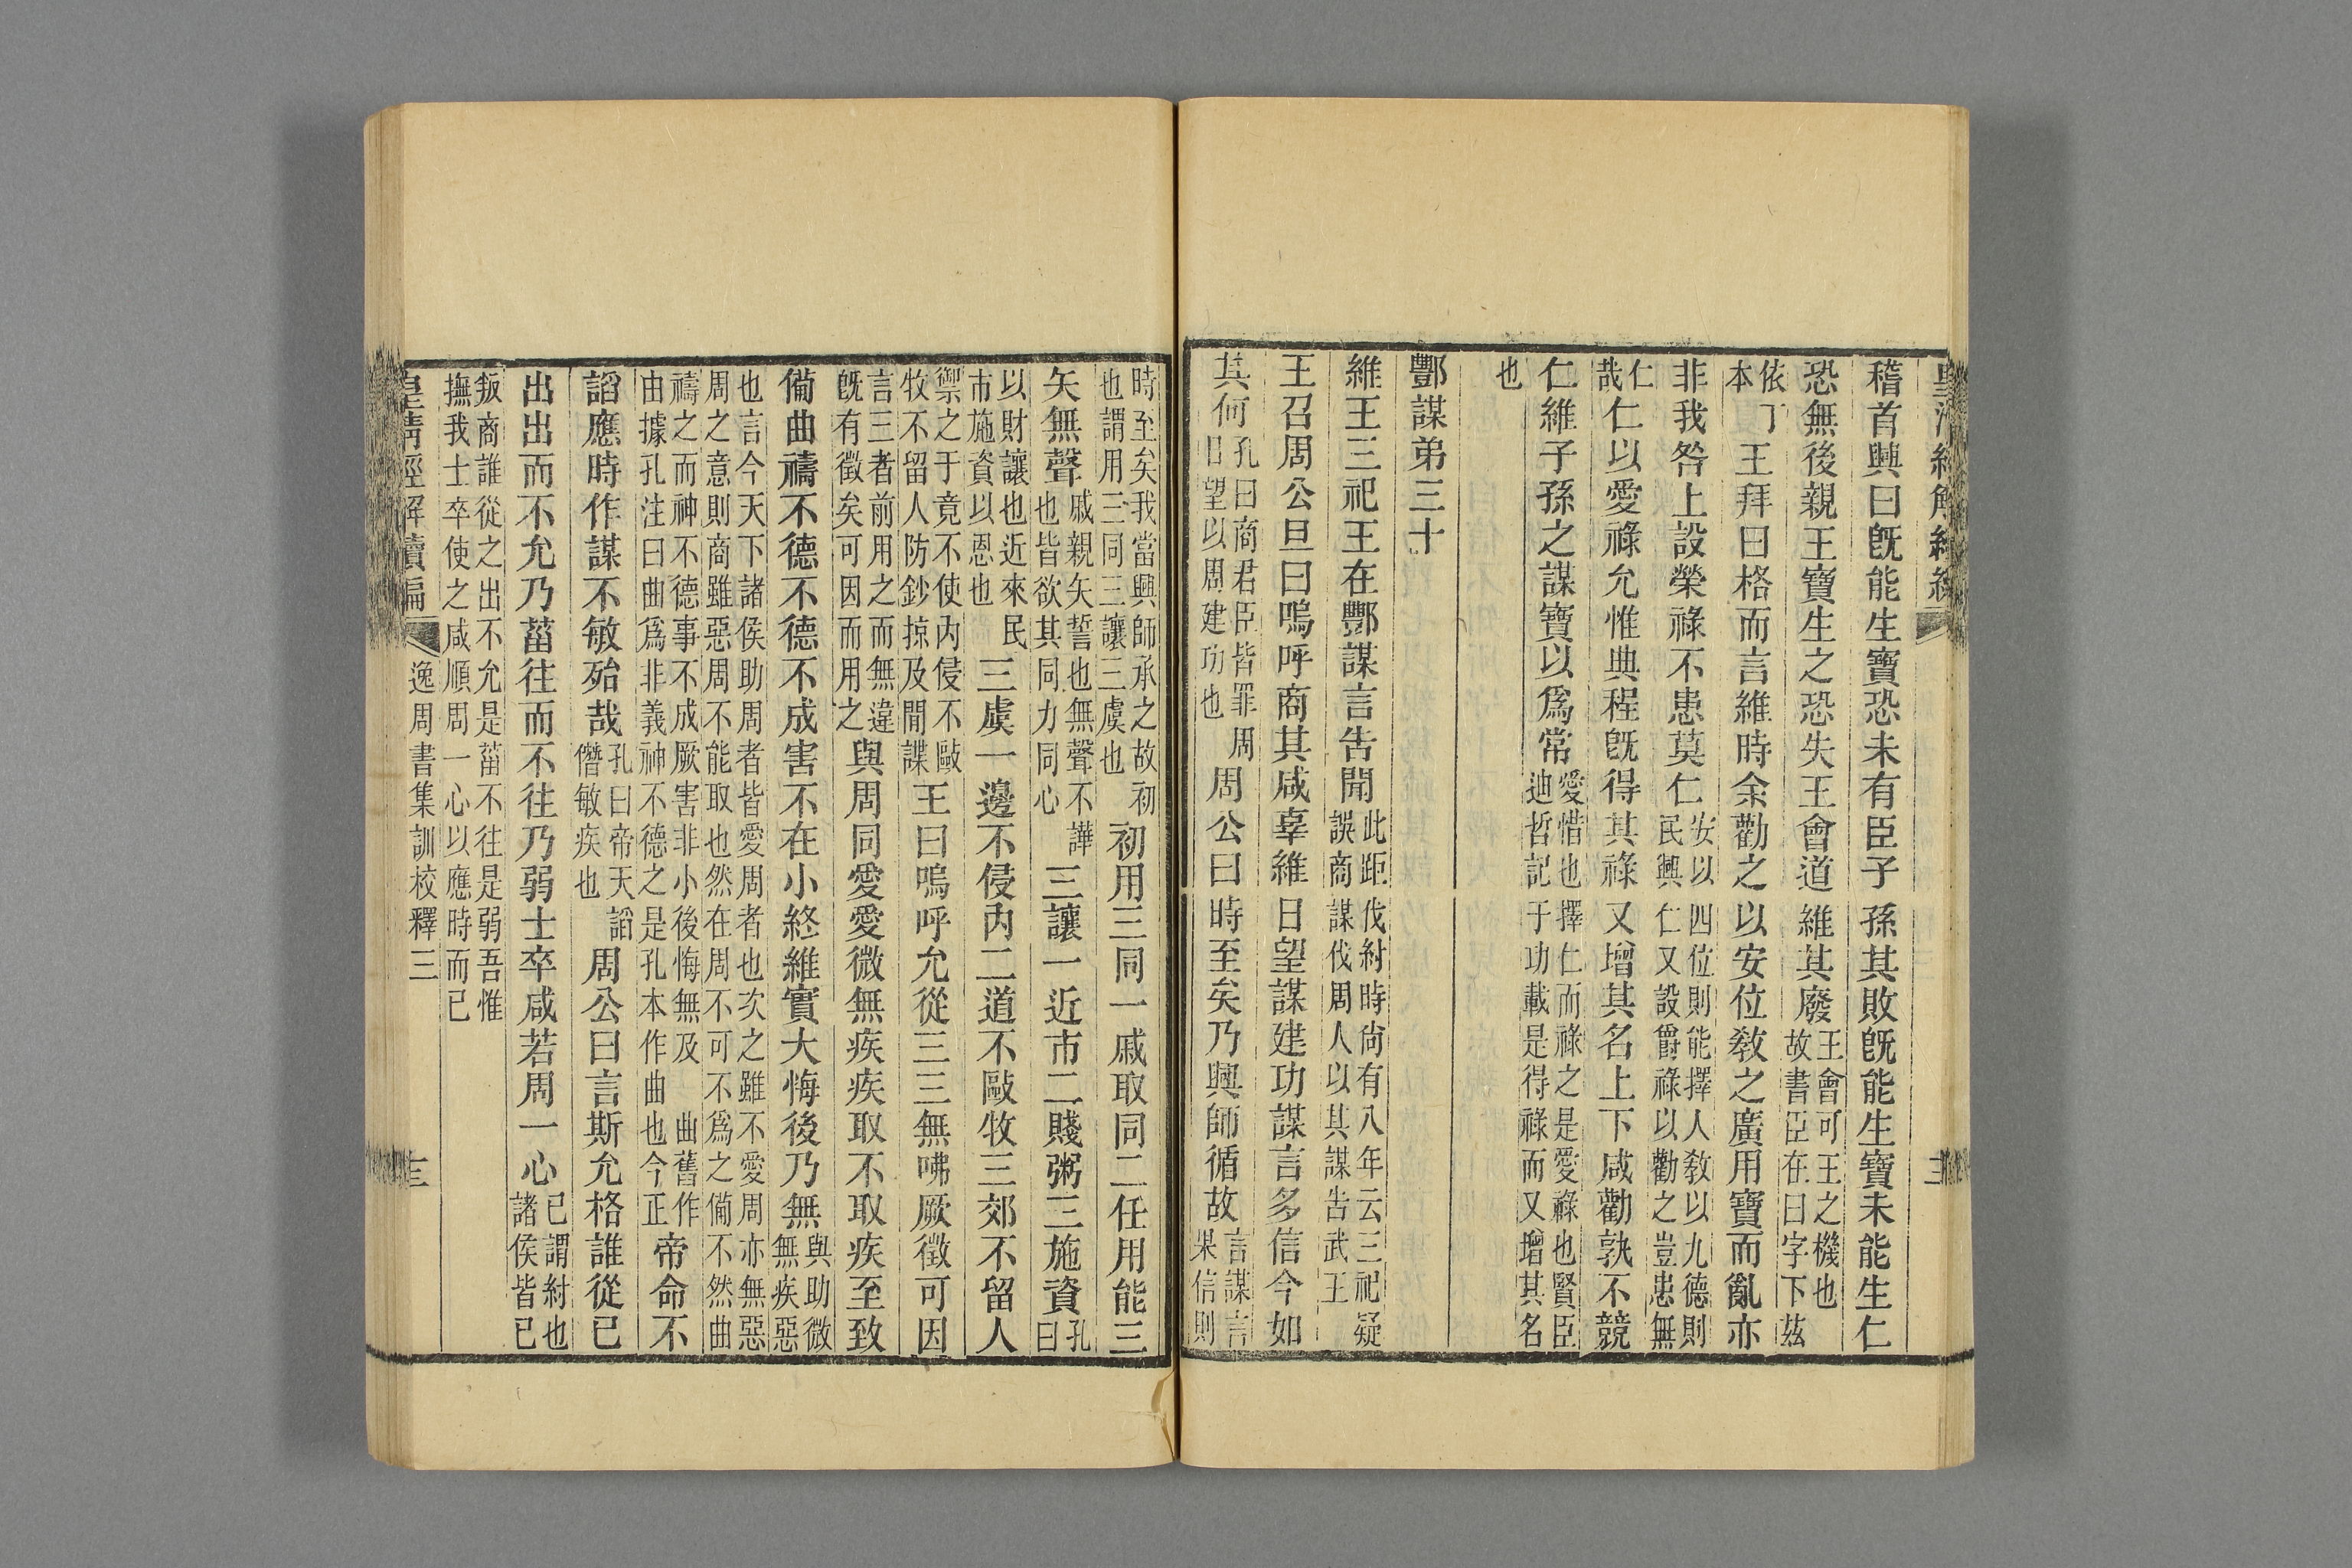 稽首興曰旣能生寶恐未有臣子孫其敗旣能生寶未能生仁
恐無後親王寶生之恐失王會道維其廢王會可王之機也故書臣在曰字下茲
依丁本王拜曰格而言維時余勸之以安位敎之廣用寶而亂亦
非我咎上設榮祿不患莫仁安以民興四位則能擇人敎以九德則仁又設爵祿以勸之豈患無
仁哉仁以愛祿允惟典程旣得其祿又增其名上下咸勸孰不競
仁維子孫之謀寶以爲常愛惜也迪哲記擇仁而祿之是愛祿也賢臣于功載是得祿而又增其名
也
酆謀弟三十
維王三祀王在酆謀言吿聞此距誤商伐紂時尙有八年云三祀疑謀伐周人以其謀吿武王
王召周公旦曰嗚呼商其咸辜維日望謀建功謀言多信今如
其何孔曰商君臣皆罪周日望以周建功也周公曰時至矣乃興師循故言謀言果信則
時至矣我當興師承之故初也謂用三同三讓三虞也初用三同一戚取同二任用能三
矢無聲戚親矢誓也無聲不譁也皆欲其同力同心三讓一近市二賤粥三施資孔曰
以財讓也近來民市施資以恩也三虞一邊不侵內二道不敺牧三郊不留人
禦之于竟不使內侵不敺牧不留人防鈔掠及閒諜王曰嗚呼允從三三無咈厥徵可因
言三者前用之而無違旣有徵矣可因而用之與周同愛愛微無疾疾取不取疾至致
備曲禱不德不德不成害不在小終維實大悔後乃無與助微無疾惡
也言今天下諸侯助周者皆愛周者也次之雖不愛周亦無惡周之意則商雖惡周不能取也然在周不可不爲之備不然曲
禱之而神不德事不成厥害非小後悔無及曲舊作由據孔注曰曲爲非義神不德之是孔本作曲也今正帝命不
謟應時作謀不敏殆哉孔曰帝天謟僭敏疾也周公曰言斯允格誰從已
出出而不允乃菑往而不往乃弱士卒咸若周一心已謂紂也諸侯皆已
叛商誰從之出不允是菑不往是弱吾惟撫我士卒使之咸順周一心以應時而已
皇淸經解續編 逸周書集訓校釋三